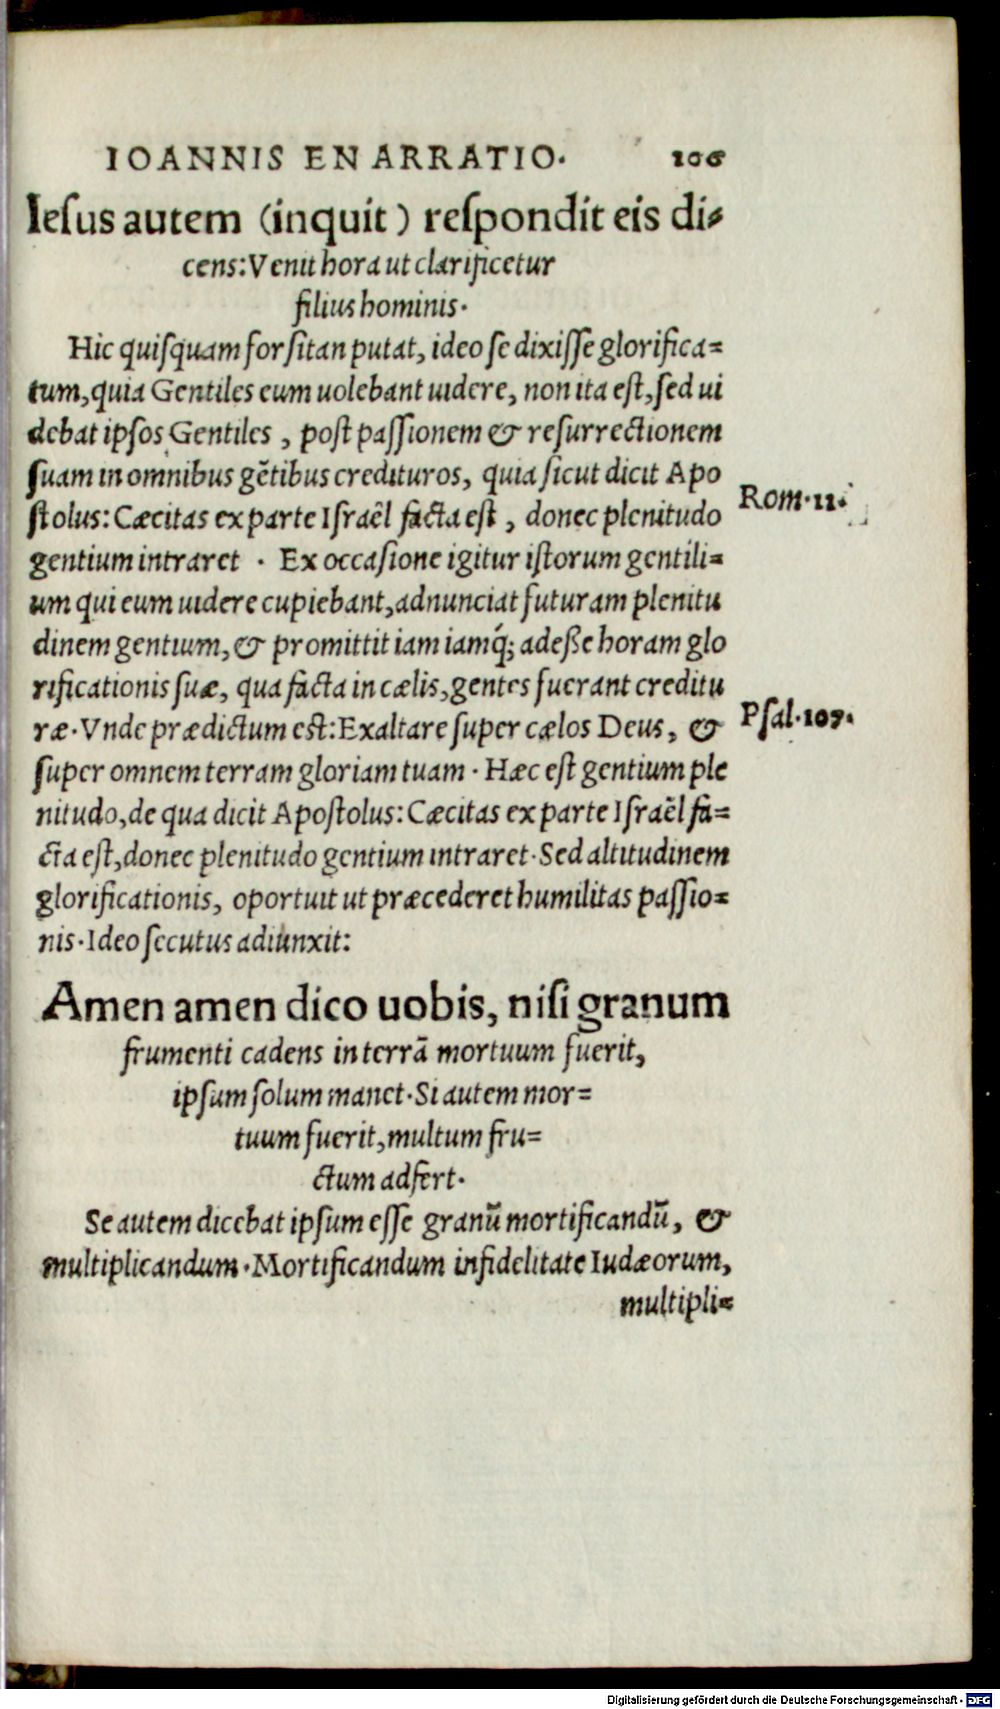 IOANNIS ENARRATIO. 106
Iesus autem (inquit) respondit eis di-
cens: Venit hora ut clarificetur
filius hominis.
Hic quisquam forsitan putat, ideo se dixisse glorifica=
tum, quia Gentiles eum uolebant uidere, non ita est, sed ui
debat ipsos Gentiles, post passionem & resurrectionem
suam in omnibus gẽtibus credituros, quia sicut dicit Apo
stolus: Cæcitas ex parte Israêl facta est, donec plenitudo
Rom. 11.
gentium intraret. Ex occasione igitur istorum gentili=
um qui eum uidere cupiebant, adnunciat futuram plenitu
dinem gentium, & promittit iam iamq́; adeße horam glo
rificationis suæ, qua facta in cælis, gentes fuerant creditu
ræ. Vnde prædictum est: Exaltare super cælos Deus, &
Psal. 107.
super omnem terram gloriam tuam. Hæc est gentium ple
nitudo, de qua dicit Apostolus: Cæcitas ex parte Israêl fa=
cta est, donec plenitudo gentium intraret. Sed altitudinem
glorificationis, oportuit ut præcederet humilitas passio=
nis. Ideo secutus adiunxit:
Amen amen dico uobis, nisi granum
frumenti cadens in terrã mortuum fuerit,
ipsum solum manet. Si autem mor=
tuum fuerit, multum fru=
ctum adfert.
Se autem dicebat ipsum esse granũ mortificandũ, &
multiplicandum. Mortificandum infidelitate Iudæorum,
multipli=
Digitalisierung gefördert durch die Deutsche Forschungsgemeinschaft - DFG